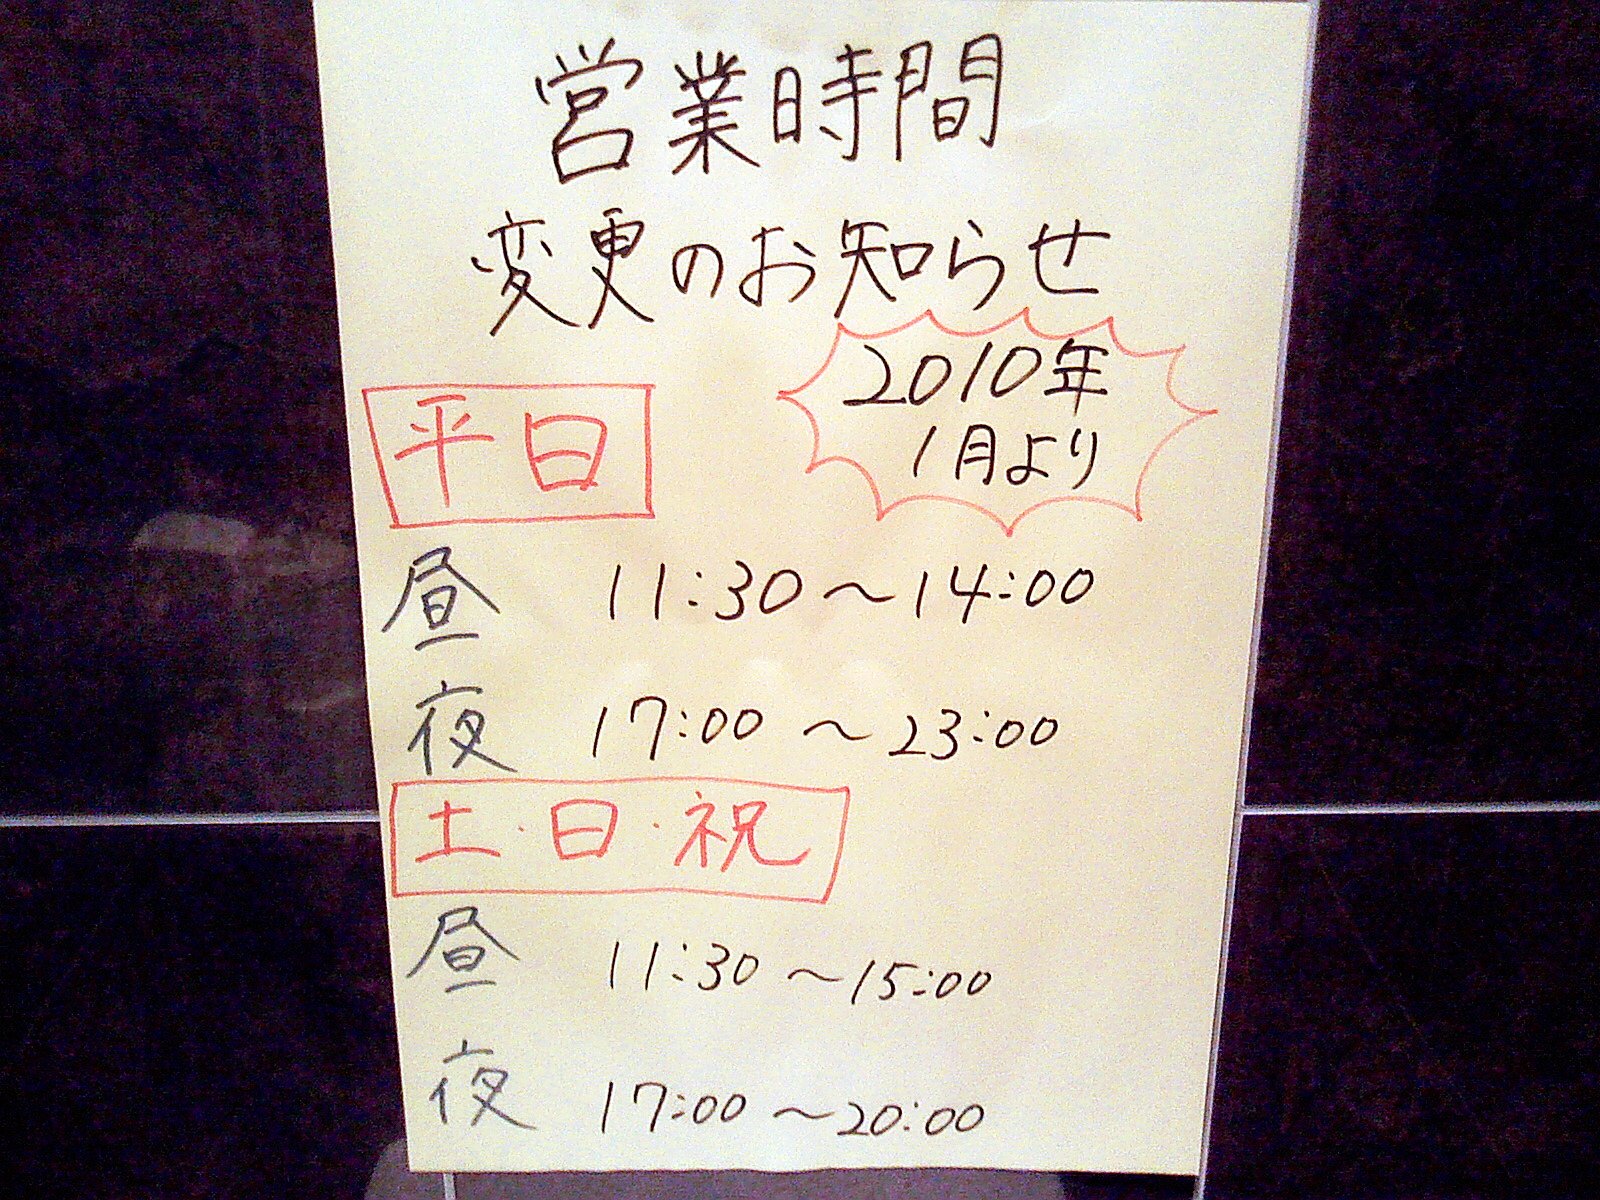 営業時間
変更のお知らせ
2010年
1月より
平日
昼 11:30～14:00
夜 17:00～23:00
土・日・祝
昼 11:30～15:00
夜 17:00～20:00